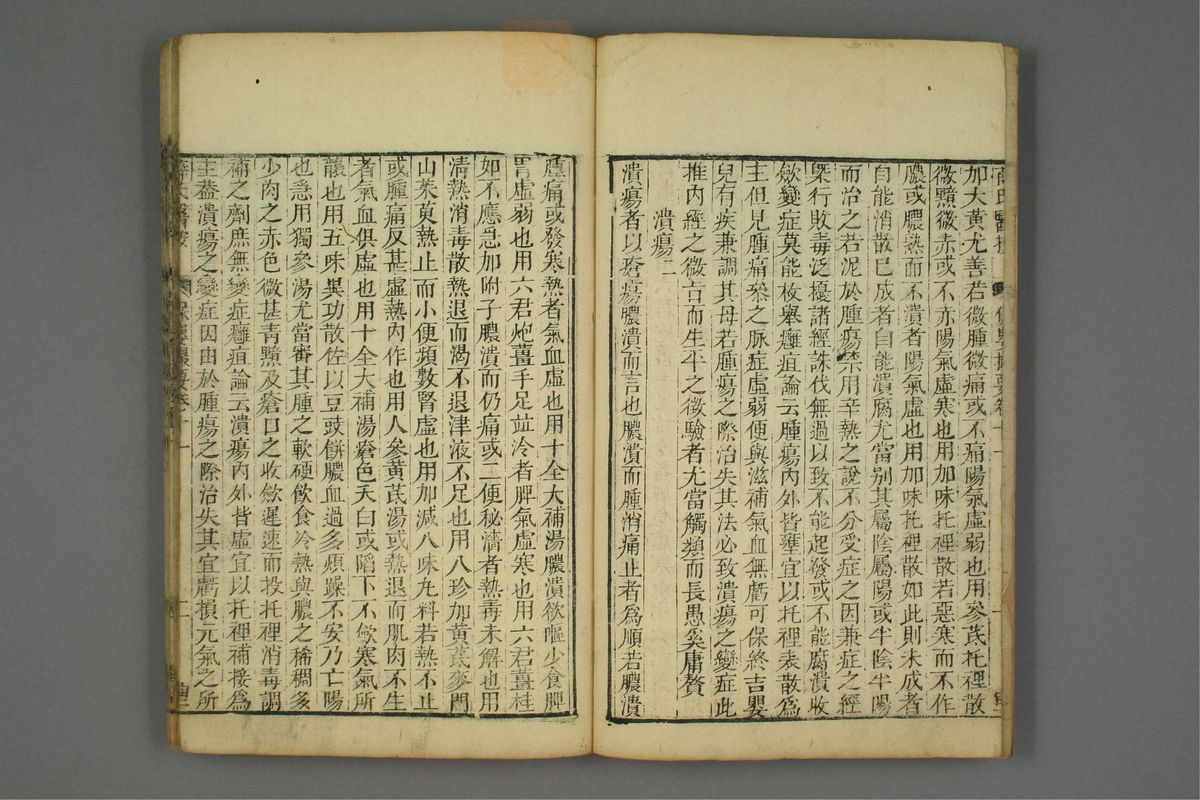 加大黄尤善若微腫微痛或不痛陽氣虛弱也用參芪托裡散
微黯微赤或不赤陽氣虛寒也用加味托裡散若惡寒而不作
膿或膿熟而不潰者陽氣虛也用加味托裡散如此則未成者
自能消散已成者自能潰腐尤當别其屬陰屬陽或半陰半陽
而治之若泥於腫瘍禁用辛熱之說不分受症之因兼症之經
槩行敗毒泛擾諸經誅伐無過以致不能起發或不能腐潰收
歛變症莫能枚舉癰疽論云腫瘍内外皆壅宜以托裡表散爲
主但見腫痛叅之脉症虛弱便與滋補氣血無虧可保終吉嬰
兒有疾兼調其母若腫瘍之際治失其法必致潰瘍之變症此
推内經之微言而生平之徵驗者尤當觸類而長愚奚庸贅
潰瘍二
潰瘍者以瘡瘍膿潰而言也膿潰而腫消痛止者爲順若膿潰
腫痛或發寒熱者氣血虛也用十全大補湯膿潰欲嘔少食脾
胃虛弱也用六君炮薑手足並冷者脾氣虛寒也用六君薑桂
如不應急加附子膿潰而仍痛或二便秘濇者熱毒未解也用
清熱消毒散熱退而渴不退津液不足也用八珍加黄芪麥門
山茱萸熱止而小便頻數腎虛也用加減八味丸料若熱不止
或腫痛反甚虛熱内作也用人參黄芪湯或熱退而肌肉不生
者氣血俱虛也用十全大補湯瘡色夭白或陷下不歛寒氣所
襲也用五味異功散佐以豆豉餅膿血過多煩躁不安乃亡陽
也急用獨參湯尤當審其腫之軟硬飲食冷熱與膿之稀稠多
少肉之赤色微甚青黯及瘡口之收歛遲速而投托裡消毒調
補之劑庶無變症癰疽論云潰瘍内外皆虛宜以托裡補接爲
主蓋潰瘍之變症因由於腫瘍之際治失其宜虧損元氣之所